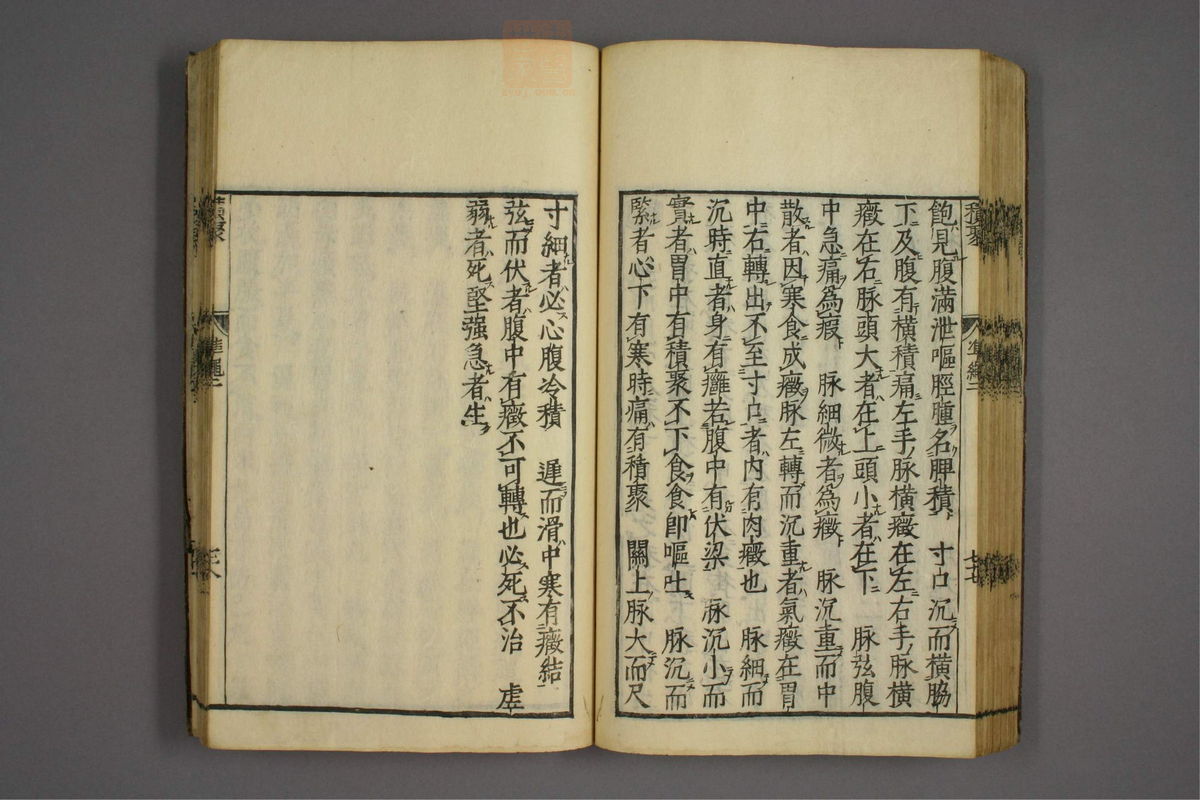 積聚
準繩二
七七
飽見腹滿泄嘔脛腫名脾積 寸口沉而橫脇
下及腹有橫積痛左手脉橫癥在左右手脉橫
癥在右脉頭大者在上頭小者在下 脉弦腹
中急痛爲瘕 脉細微者爲癥 脉沉重而中
散者因寒食成癥脉左轉而沉重者氣癥在胃
中右轉出不至寸口者內有肉癥也 脉細而
沉時直者身有癰若腹中有伏梁 脉沉小而
實者胃中有積聚不下食食卽嘔吐 脉沉而
緊者心下有寒時痛有積聚 關上脉大而尺
寸細者必心腹冷積 遲而滑中寒有癥結
弦而伏者腹中有癥不可轉也必死不治 虛
弱者死堅强急者生
準繩二